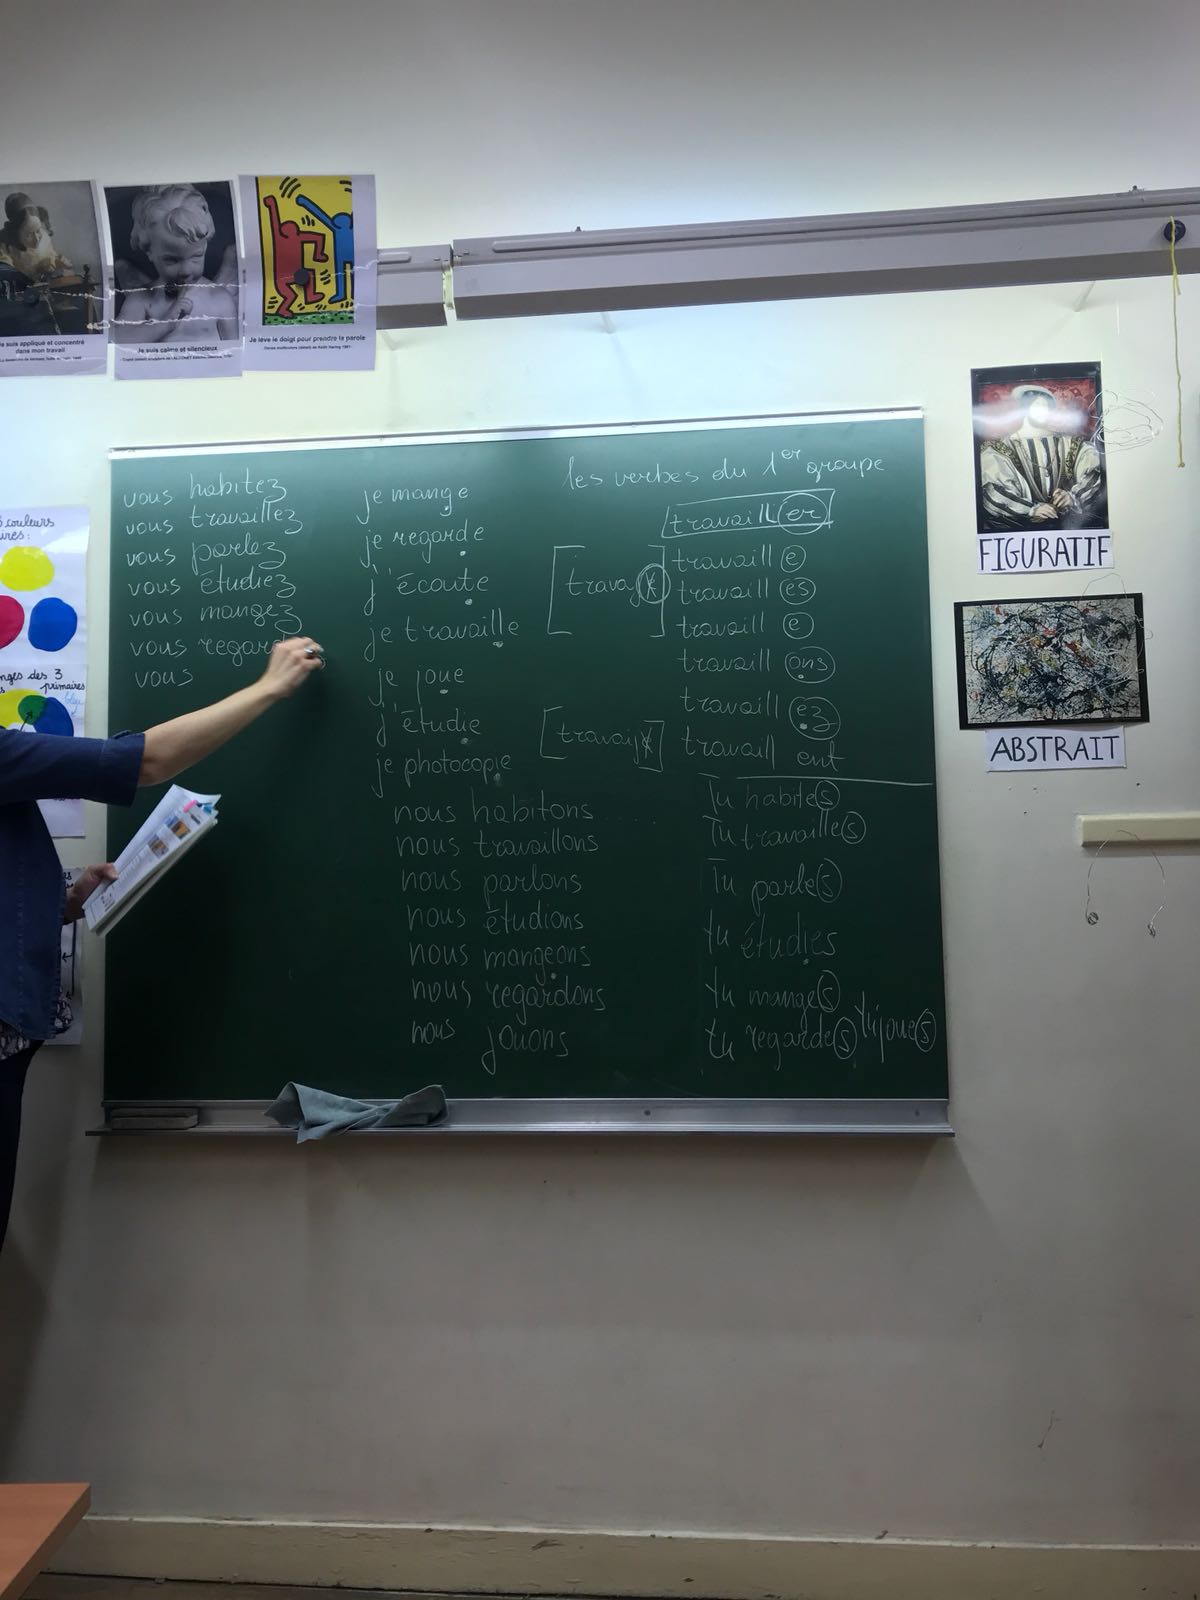 Je suis appliqué et concentré
dans mon travail
Je suis calme et silencieux
Je lève le doigt pour prendre la parole
couleurs
vous habitez
vous travaillez
vous parlez
vous étudiez
vous mangez
vous regard
vous
je mange
je regarde
j'écoute
je travaille
je joue
j'étudie
je photocopie
nous habitons .....
nous travaillons
nous parlons
nous étudions
nous mangeons
nous regardons
nous jouons
les verbes du 1er groupe
travailler
travaill e
travaill es
travaill e
travaill ons
travaill ez
travaill ent
Tu habites
Tu travailles
Tu parles
tu étudies
tu manges
tu regardes tu joues
FIGURATIF
ABSTRAIT
des 3
primaires